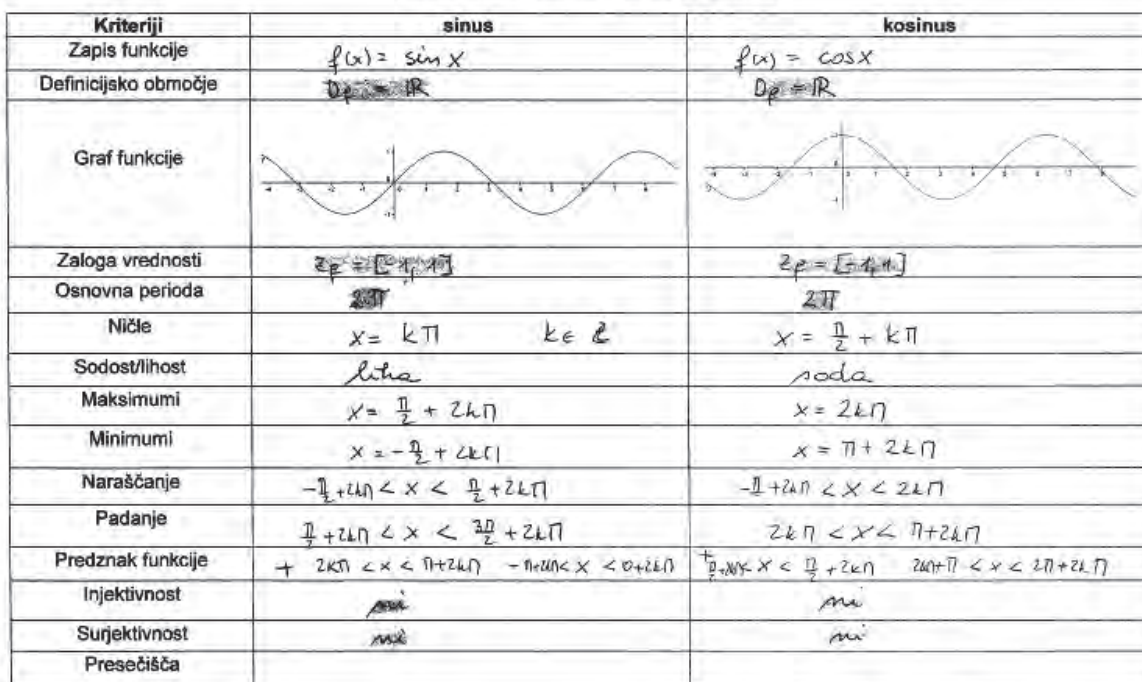 Kriteriji sinus kosinus
Zapis funkcije f(x) = sin x f(x) = cos x
Definicijsko območje Df = ℝ Df = ℝ
Graf funkcije
Zaloga vrednosti Zf = [-1, 1] Zf = [-1, 1]
Osnovna perioda 2π 2π
Ničle x = kπ k ∈ ℤ x = π/2 + kπ
Sodost/lihost liha soda
Maksimumi x = π/2 + 2kπ x = 2kπ
Minimumi x = -π/2 + 2kπ x = π + 2kπ
Naraščanje -π/2 + 2kπ < x < π/2 + 2kπ -π + 2kπ < x < 2kπ
Padanje π/2 + 2kπ < x < 3π/2 + 2kπ 2kπ < x < π + 2kπ
Predznak funkcije + 2kπ < x < π + 2kπ -π + 2kπ < x < 0 + 2kπ + < x < π/2 + 2kπ 2kπ + π < x < 2π + 2kπ
Injektivnost ni ni
Surjektivnost ni ni
Presečišča